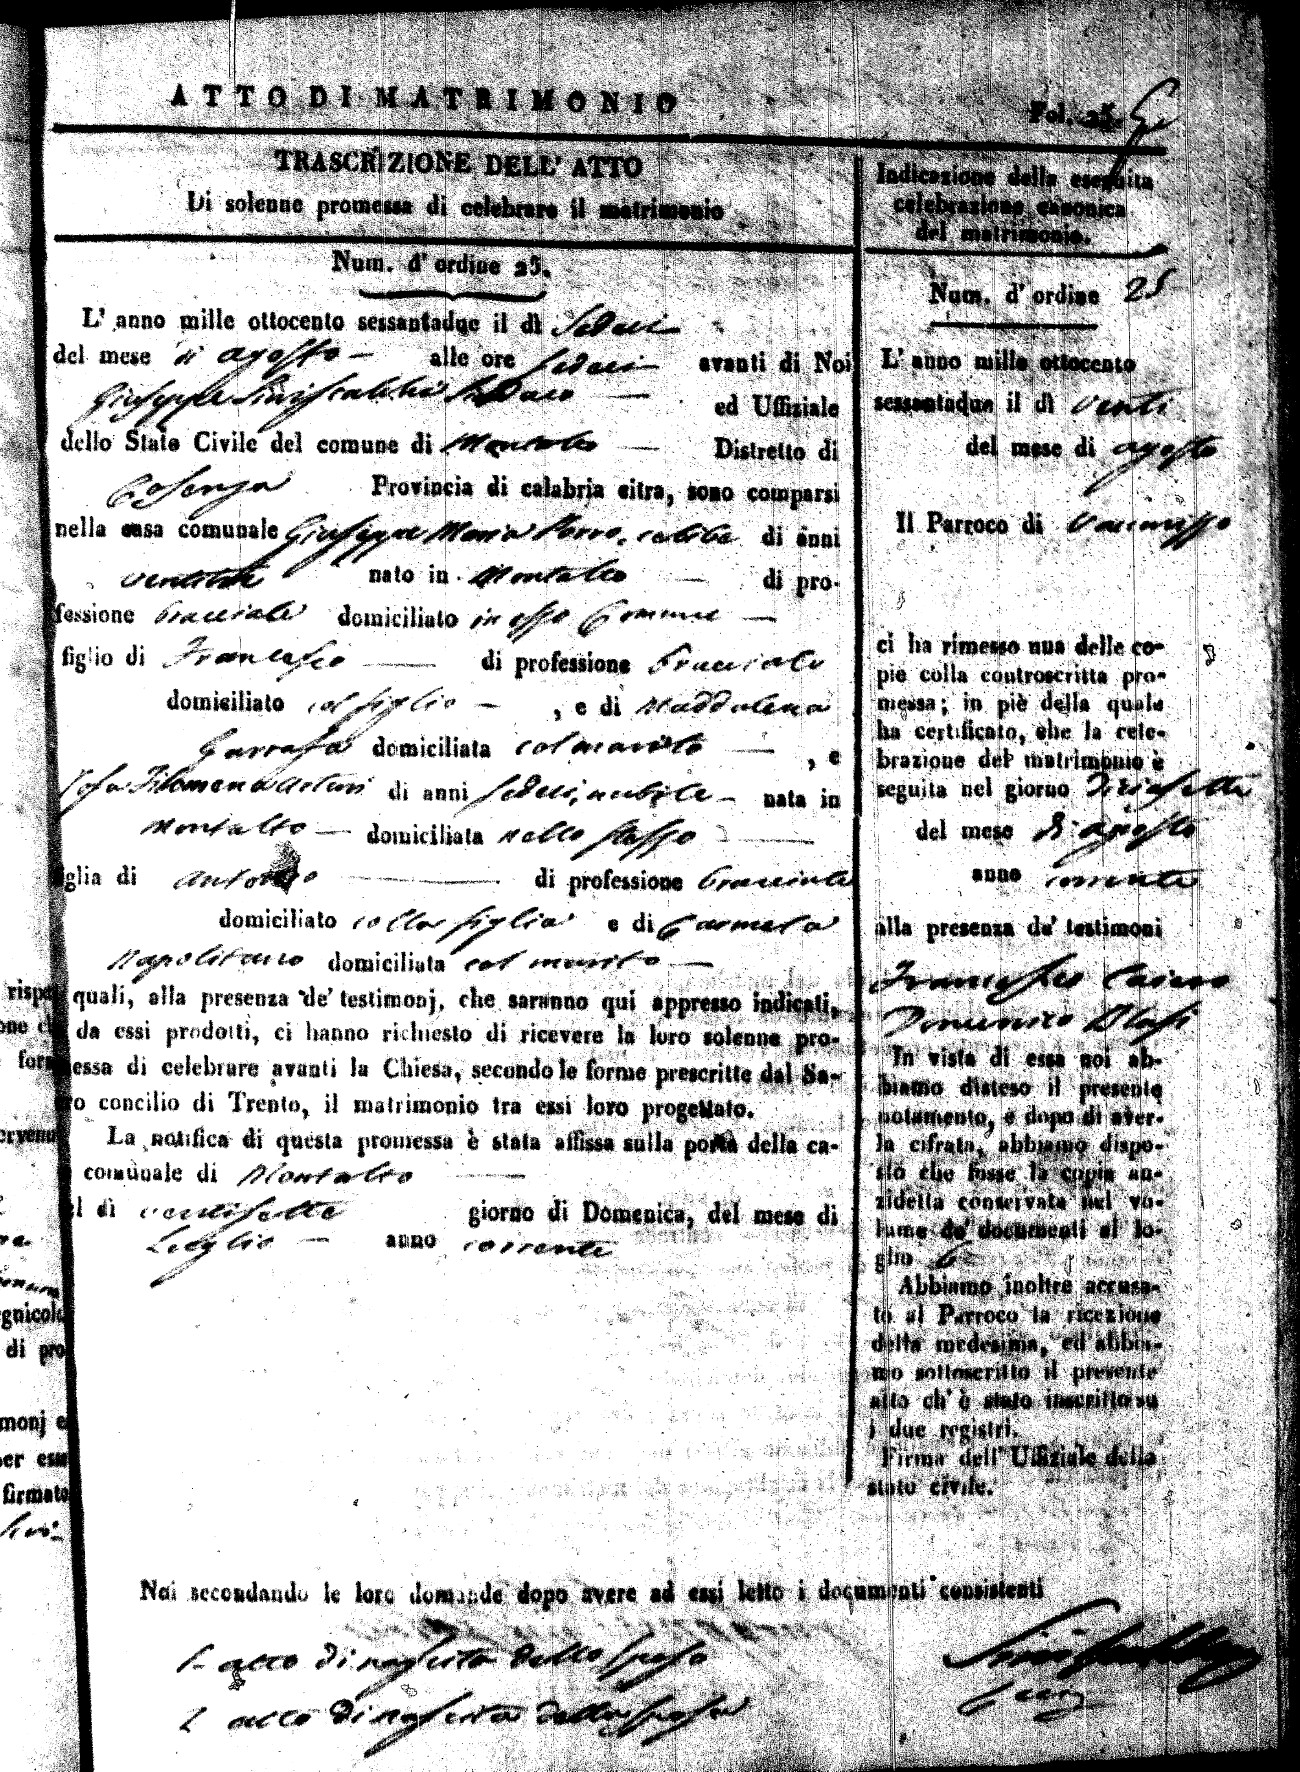 ATTO DI MATRIMONIO
Fol. 25.
TRASCRIZIONE DELL' ATTO
Di solenne promessa di celebrare il matrimonio
Num. d' ordine 25.
L' anno mille ottocento sessantadue il dì Sedeci
del mese di agosto alle ore sedeci avanti di Noi
Giuseppe Siniscalchi Sindaco ed Uffiziale
dello Stato Civile del comune di Montalto Distretto di
Cosenza Provincia di calabria citra, sono comparsi
nella casa comunale Giuseppe Maria Porro, celibe di anni
nato in Montalto di pro-
fessione bracciale domiciliato in esso Comune
figlio di Francesco di professione bracciale
domiciliato col figlio , e di Maddalena
Garrafa domiciliata col marito , e
Rosa Filomena Arturi di anni sedeci, nubile nata in
Montalto domiciliata nello stesso
iglia di Antonio di professione bracciale
domiciliato colla figlia e di Carmela
Napolitano domiciliata col marito
quali, alla presenza de' testimonj, che saranno qui appresso indicati,
da essi prodotti, ci hanno richiesto di ricevere la loro solenne pro-
essa di celebrare avanti la Chiesa, secondo le forme prescritte dal Sa-
ro concilio di Trento, il matrimonio tra essi loro progettato.
La notifica di questa promessa è stata affissa sulla porta della ca-
comunale di Montalto
l dì ventisette giorno di Domenica, del mese di
Luglio anno corrente
Noi secondando le loro domande dopo avere ad essi letto i documenti consistenti
1- atto di nascita dello sposo
2 atto di nascita della sposa
Indicazione della eseguita
celebrazione canonica
del matrimonio.
Num. d' ordine 25
L' anno mille ottocento
sessantadue il dì venti
del mese di agosto
Il Parroco di Vaccarizzo
ci ha rimesso una delle co-
pie colla controscritta pro-
messa; in piè della quale
ha certificato, che la cele-
brazione del matrimonio è
seguita nel giorno diciasette
del mese di agosto
anno corrente
alla presenza de' testimoni
Francesco Cairo
Domenico Blasi
In vista di essa noi ab-
biamo disteso il presente
notamento, e dopo di aver-
la cifrata, abbiamo dispo-
sto che fosse la copia an-
zidetta conservata nel vo-
lume de' documenti al fo-
glio 6
Abbiamo inoltre accusa-
to al Parroco la ricezione
della medesima, ed abbia-
mo sottoscritto il presente
atto ch' è stato inscritto su
i due registri.
Firma dell' Uffiziale dello
stato civile.
Siniscalchi